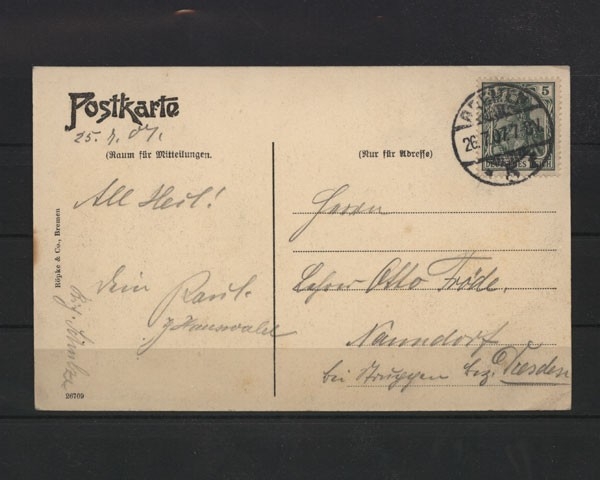 Postkarte
25. 7. 07.
(Raum für Mitteilungen.
(Nur für Adresse)
BREMEN
26.7.07.7-8
5
All Heil!
Dein Paul
Herrn
Lehrer Otto Fröde.
Naundorf
bei Struppen bez. Dresden
Röpke & Co., Bremen
26769